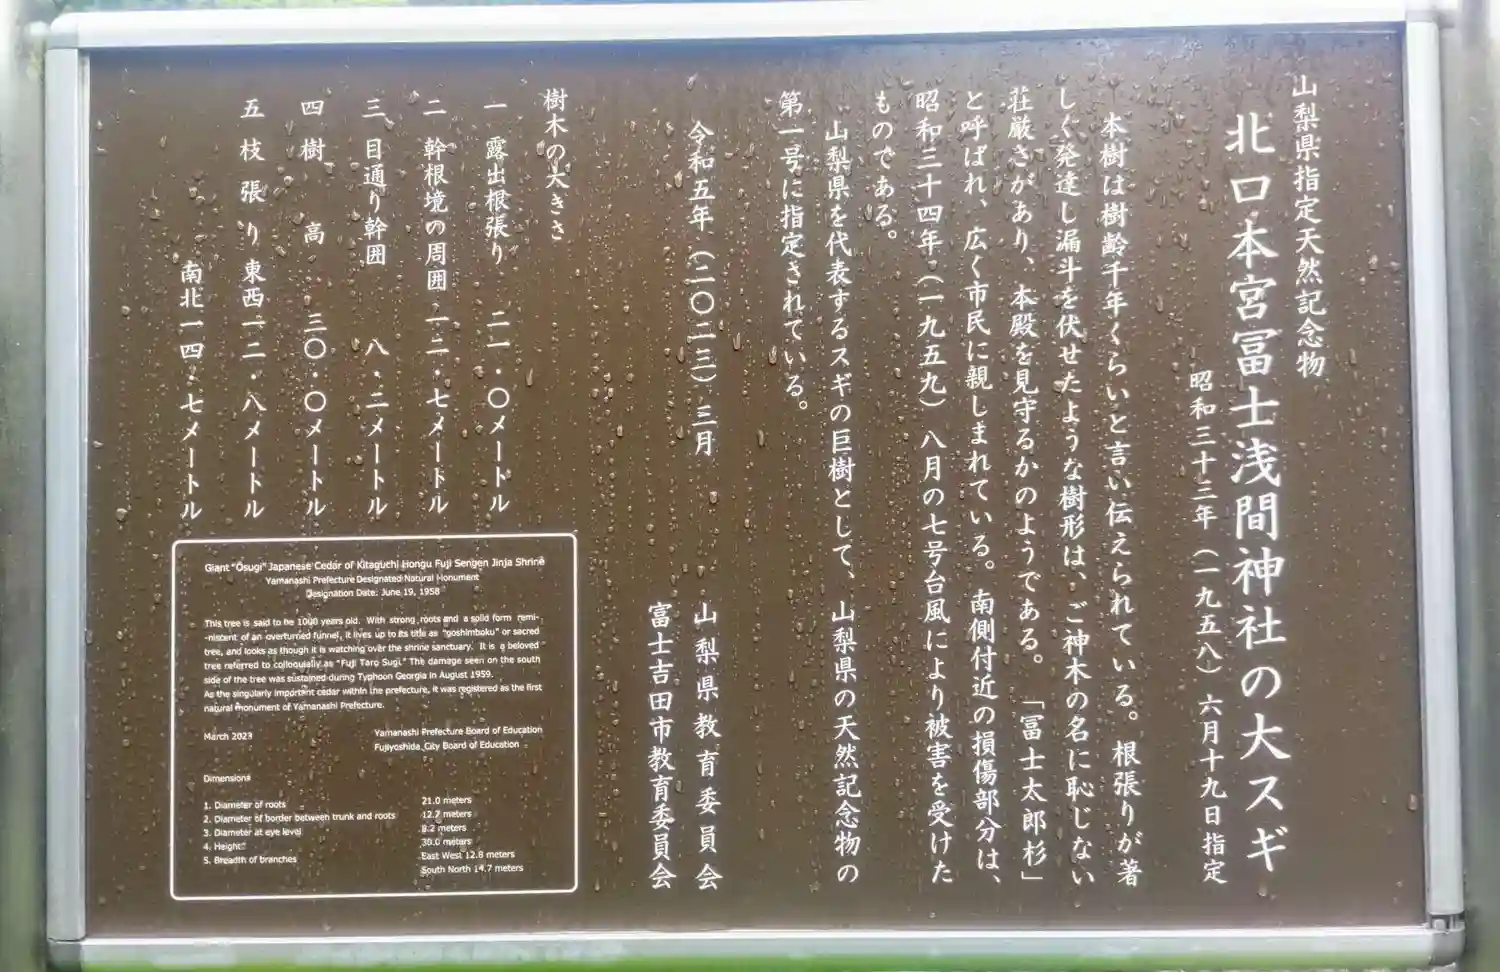 山梨県指定天然記念物
北口本宮冨士浅間神社の大スギ
昭和三十三年（一九五八）六月十九日指定
本樹は樹齢千年くらいと言い伝えられている。根張りが著
しく発達し漏斗を伏せたような樹形は、ご神木の名に恥じない
荘厳さがあり、本殿を見守るかのようである。「冨士太郎杉」
と呼ばれ、広く市民に親しまれている。南側付近の損傷部分は、
昭和三十四年（一九五九）八月の七号台風により被害を受けた
ものである。
山梨県を代表するスギの巨樹として、山梨県の天然記念物の
第一号に指定されている。
令和五年（二〇二三）三月
山梨県教育委員会
富士吉田市教育委員会
樹木の大きさ
一 露出根張り 二一・〇メートル
二 幹根境の周囲 一二・七メートル
三 目通り幹囲 八・二メートル
四 樹高 三〇・〇メートル
五 枝張り 東西一二・八メートル
南北一四・七メートル
Giant "Ōsugi" Japanese Cedar of Kitaguchi Hongu Fuji Sengen Jinja Shrine
Yamanashi Prefecture Designated Natural Monument
Designation Date: June 19, 1958
This tree is said to be 1000 years old. With strong roots and a solid form remi-
-niscent of an overturned funnel, it lives up to its title as "goshimboku" or sacred
tree, and looks as though it is watching over the shrine sanctuary. It is a beloved
tree referred to colloquially as "Fuji Taro Sugi." The damage seen on the south
side of the tree was sustained during Typhoon Georgia in August 1959.
As the singularly important cedar within the prefecture, it was registered as the first
natural monument of Yamanashi Prefecture.
March 2023
Yamanashi Prefecture Board of Education
Fujiyoshida City Board of Education
Dimensions
1. Diameter of roots 21.0 meters
2. Diameter of border between trunk and roots 12.7 meters
3. Diameter at eye level 8.2 meters
4. Height 30.0 meters
5. Breadth of branches East West 12.8 meters
South North 14.7 meters